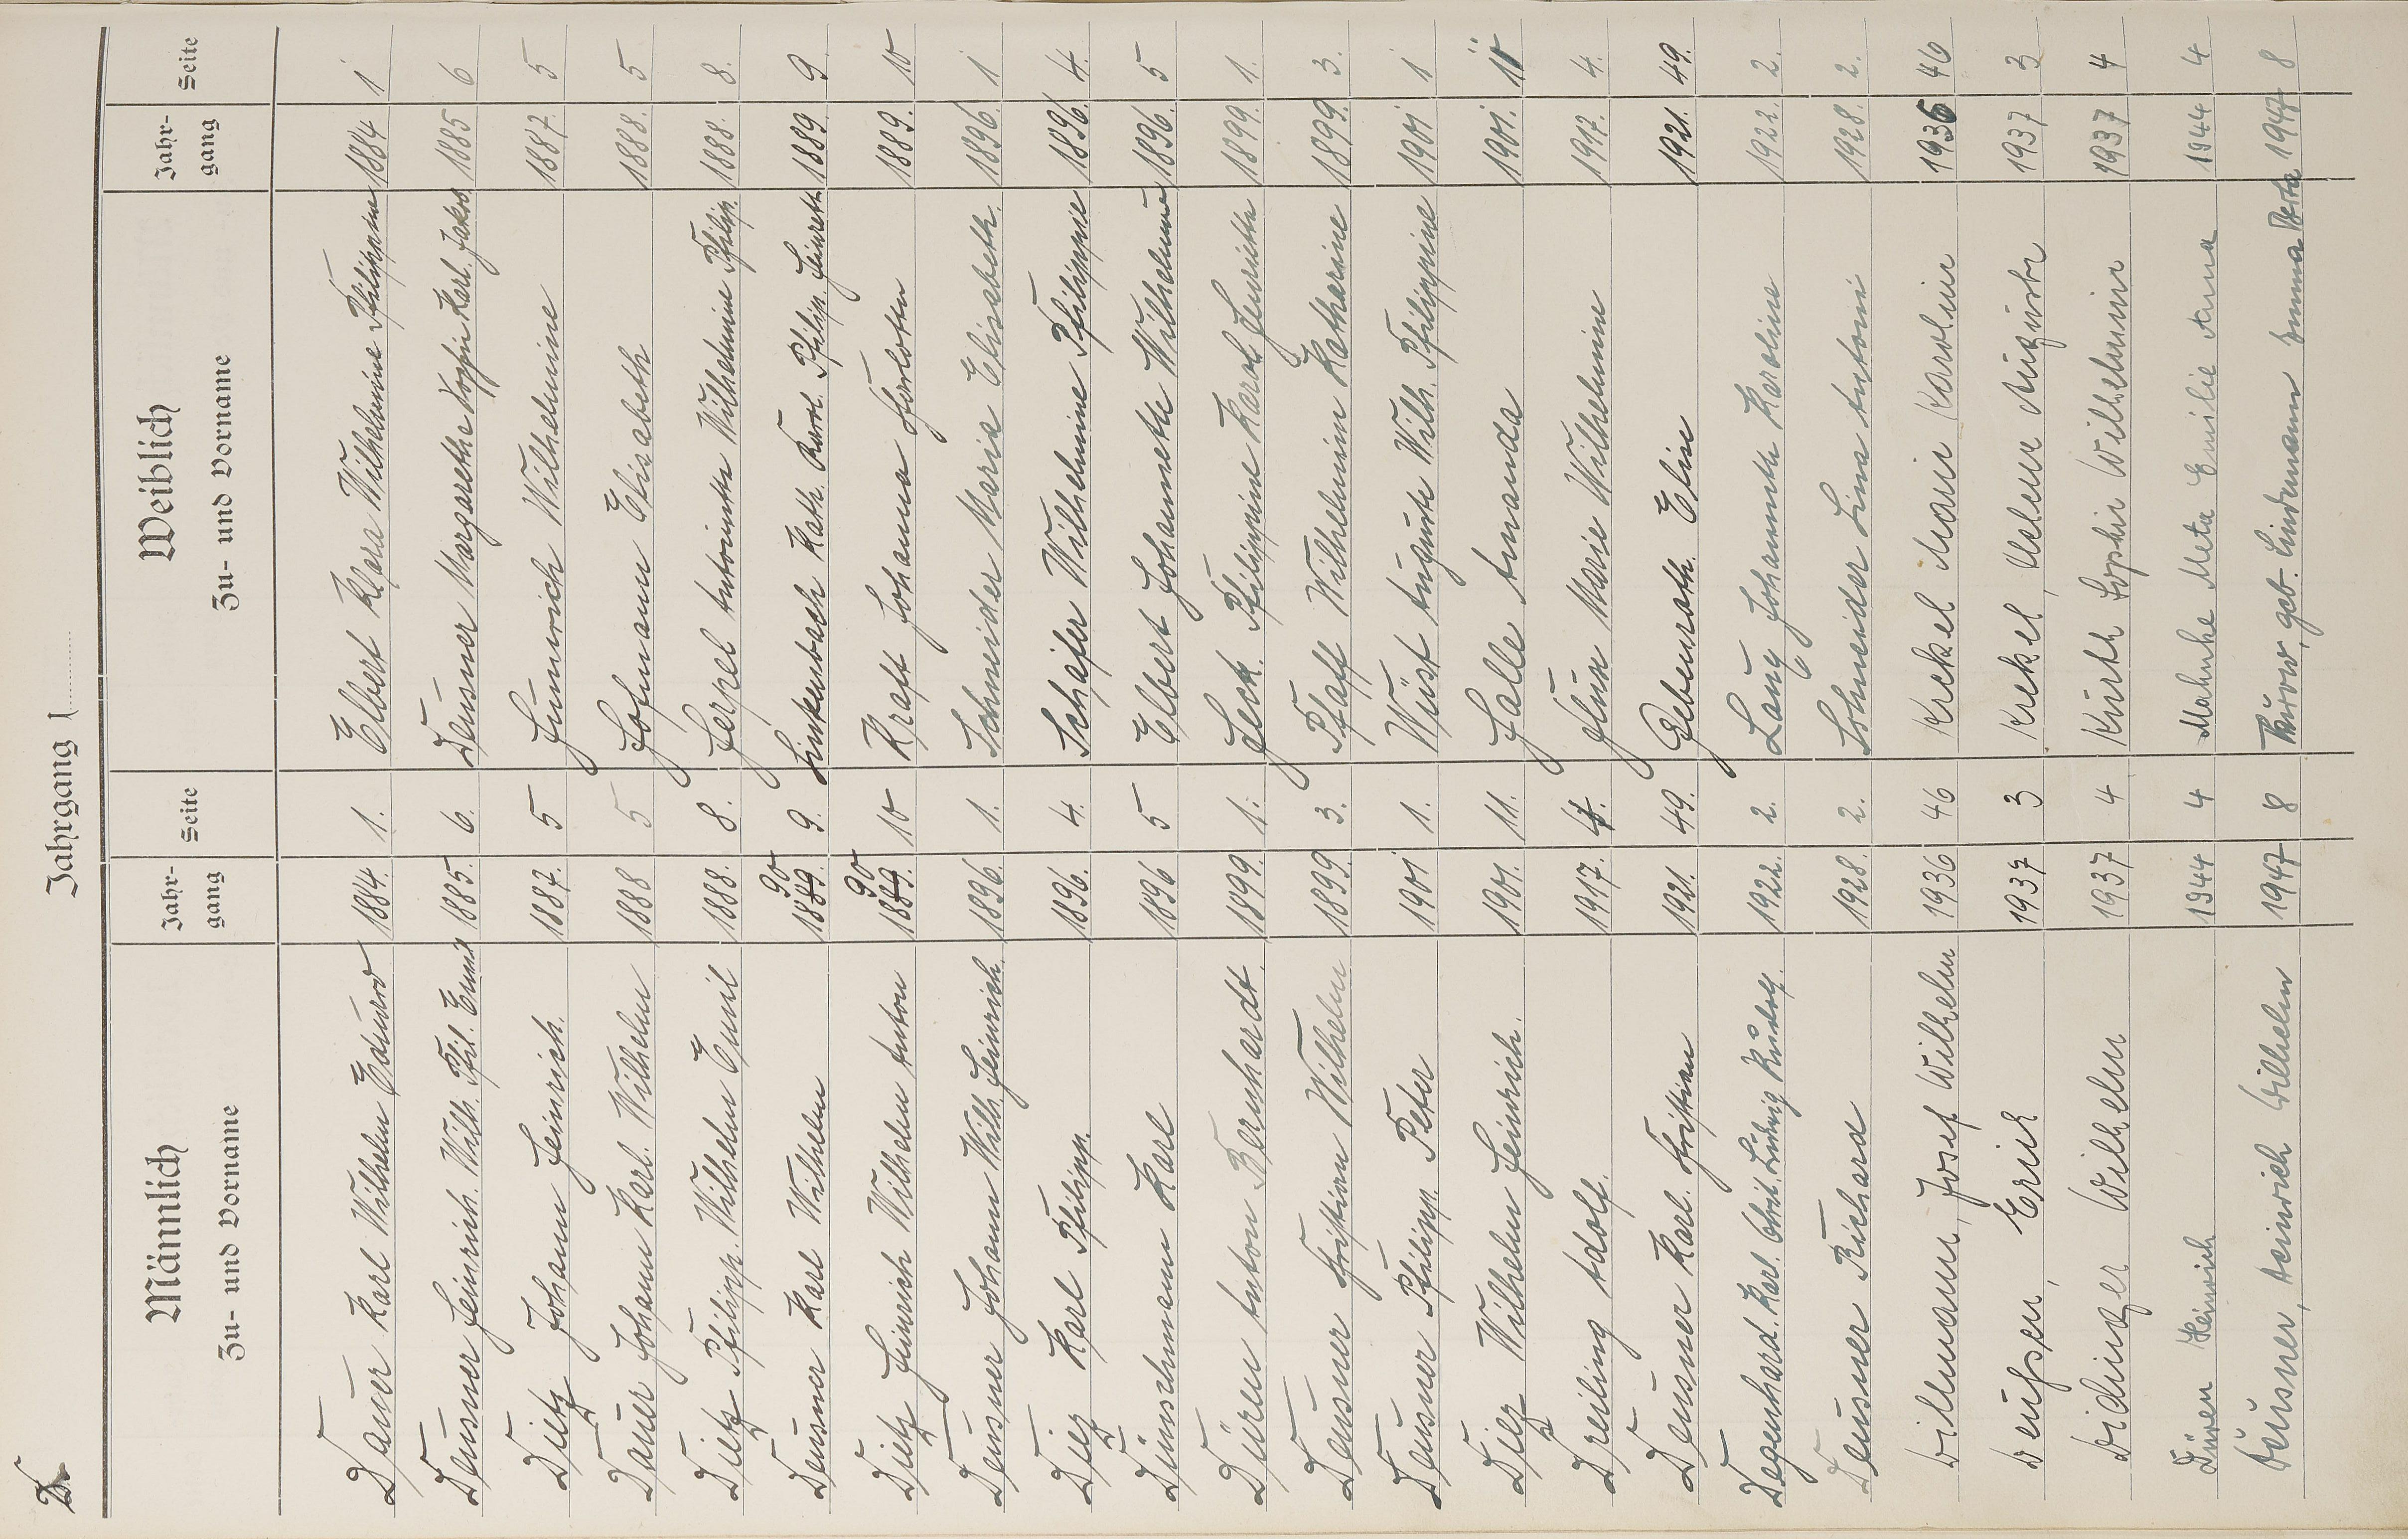 D.
Jahrgang 1
Männlich Weiblich
Zu- und Vorname Jahr-gang Seite Zu- und Vorname Jahr-gang Seite
Dauer Karl Wilhelm Eduard 1884. 1. Elbert Klara Wilhelmine Philippine 1884 1
Deusner Heinrich Wilh. Phil. Emil 1885. 6. Deusner Margarethe Sophie Karl. Jakob. 1885 6
Dietz Johann Heinrich. 1887. 5 Hünerich Wilhelmine 1887. 5
Dauer Johann Karl. Wilhelm 1888 5 Hofmann Elisabeth 1888. 5
Dietz Philipp. Wilhelm Emil 1888. 8. Herzel Antoinette Wilhelmine Philip. 1888. 8.
Deusner Karl Wilhelm 1889. 90 9. Linkenbach Kath. Karol. Philip. Henreth. 1889. 9.
Dietz Heinrich Wilhelm Anton 1889. 90 10 Kraft Johanna 1889. 10
Deusner Johann Wilh. Heinrich. 1896. 1. Schneider Maria Elisabeth. 1896. 1
Diez Karl Philipp. 1896. 4. Schäfer Wilhelmine Philippine 1896. 4.
Dünschmann Karl 1896 5 Elbert Johannette Wilhelmine 1896. 5
Düren Anton Bernhardt. 1899. 1. Heck. Philippine Karol. Henriette 1899. 1.
Deusner Christian Wilhelm 1899 3. Pfaff Wilhelmine Katharine 1899. 3.
Deusner Philipp. Peter 1901 1. Wüst Auguste Wilh. Philippine 1901 1
Diez Wilhelm Heinrich. 1901. 11. Halle Amanda 1901. 11
Dreiling Adolf. 1917. 4. Glün Marie Wilhelmine 1917. 4.
Deusner Karl. Christian 1921. 49. Gebenroth. Elise 1921. 49.
Degenhard. Karl. Christ. Ludwig Rudolf. 1922. 2. Laug Johannette Karoline 1922. 2.
Deusner Richard 1928. 2. Schneider Lina Antonie 1928. 2.
Dillmann, Josef Wilhelm 1936 46 Krekel Marie Karoline 1936 46
Deußer, Erich 1937 3 Krekel, Helene Auguste 1937 3
Didinger Wilhelm 1937 4 Kürth Sophie Wilhelmine 1937 4
Düren Heinrich 1944 4 Mahnke Meta Emilie Anna 1944 4
Deusner, Heinrich Wilhelm 1947 8 Thürow, geb. Lindemann Emma Berta 1947 8